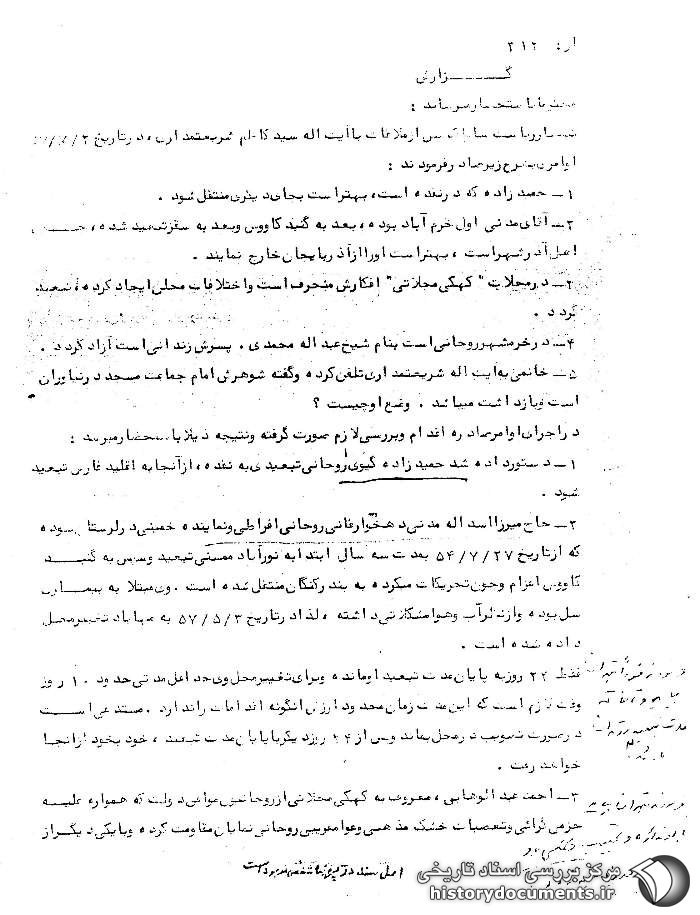 از: ۳۱۲
گـــــــزارش
محترما باستحضار میرساند :
ریاست ساواک پس از ملاقات با آیت اله سید کاظم شریعتمداری ، در تاریخ
اوامری بشرح زیر صادر فرمودند :
۱ـ حمیدزاده که در نقده است ، بهتر است بجای دیگری منتقل شود .
۲ـ آقای مدنی اول خرم آباد بوده ، بعد به گنبد کاووس وبعد به سقز تبعید شده ،
اهل آذرشهر است ، بهتر است اورا از آذربایجان خارج نمایند .
۳ـ در محلات " کهکی محلاتی " افکارش منحرف است واختلافات محلی ایجاد کرده ، تبعید
گردد .
۴ـ در خرمشهر روحانی است بنام شیخ عبداله محمدی . پسرش زندانی است آزاد گردد .
۵ـ خانمی به آیت اله شریعتمداری تلفن کرده وگفته شوهرش امام جماعت مسجد در نیاوران
است وبازداشت میباشد . وضع او چیست ؟
در اجرای اوامر صادره اقدام وبررسی لازم صورت گرفته ونتیجه ذیلا باستحضار میرسد :
۱ـ دستور داده شد حمیدزاده گیوی روحانی تبعیدی به نقده ، از آنجا به اقلید فارس تبعید
شود .
۲ـ حاج میرزا اسداله مدنی دهخوارقانی روحانی افراطی ونماینده خمینی در لرستان بوده
که از تاریخ ۵۴/۷/۲۷ بمدت سه سال ابتدا به نورآباد ممسنی تبعید وسپس به گنبد
کاووس اعزام وچون تحریکات میکرده به بندر کنگان منتقل شده است . وی مبتلا به بیماری
سل بوده واز نظر آب وهوا مشکلاتی داشته ، لذا در تاریخ ۵۷/۵/۳ به مهاباد تغییر محل
داده شده است .
فقط ۲۲ روز به پایان مدت تبعید او مانده وبرای تغییر محل وی حداقل مدتی حدود ۱۰ روز
وقت لازم است که این مدت زمان محدود ارزش اینگونه اقدامات را ندارد . مستدعی است
در صورت تصویب در محل بماند وپس از ۲۲ روز دیگر با پایان مدت تبعید ، خود بخود از آنجا
خواهد رفت .
۳ـ احمد عبدالوهابی ، معروف به کهکی محلاتی از روحانیون موافق دولت که همواره علیه
خرمی گرائی وتعصبات خشک مذهبی وعوامفریبی روحانی نمایان مقاومت کرده وبا یکی دیگر از
اصل سند در
مرکز بررسی اسناد تاریخی
historydocuments.ir